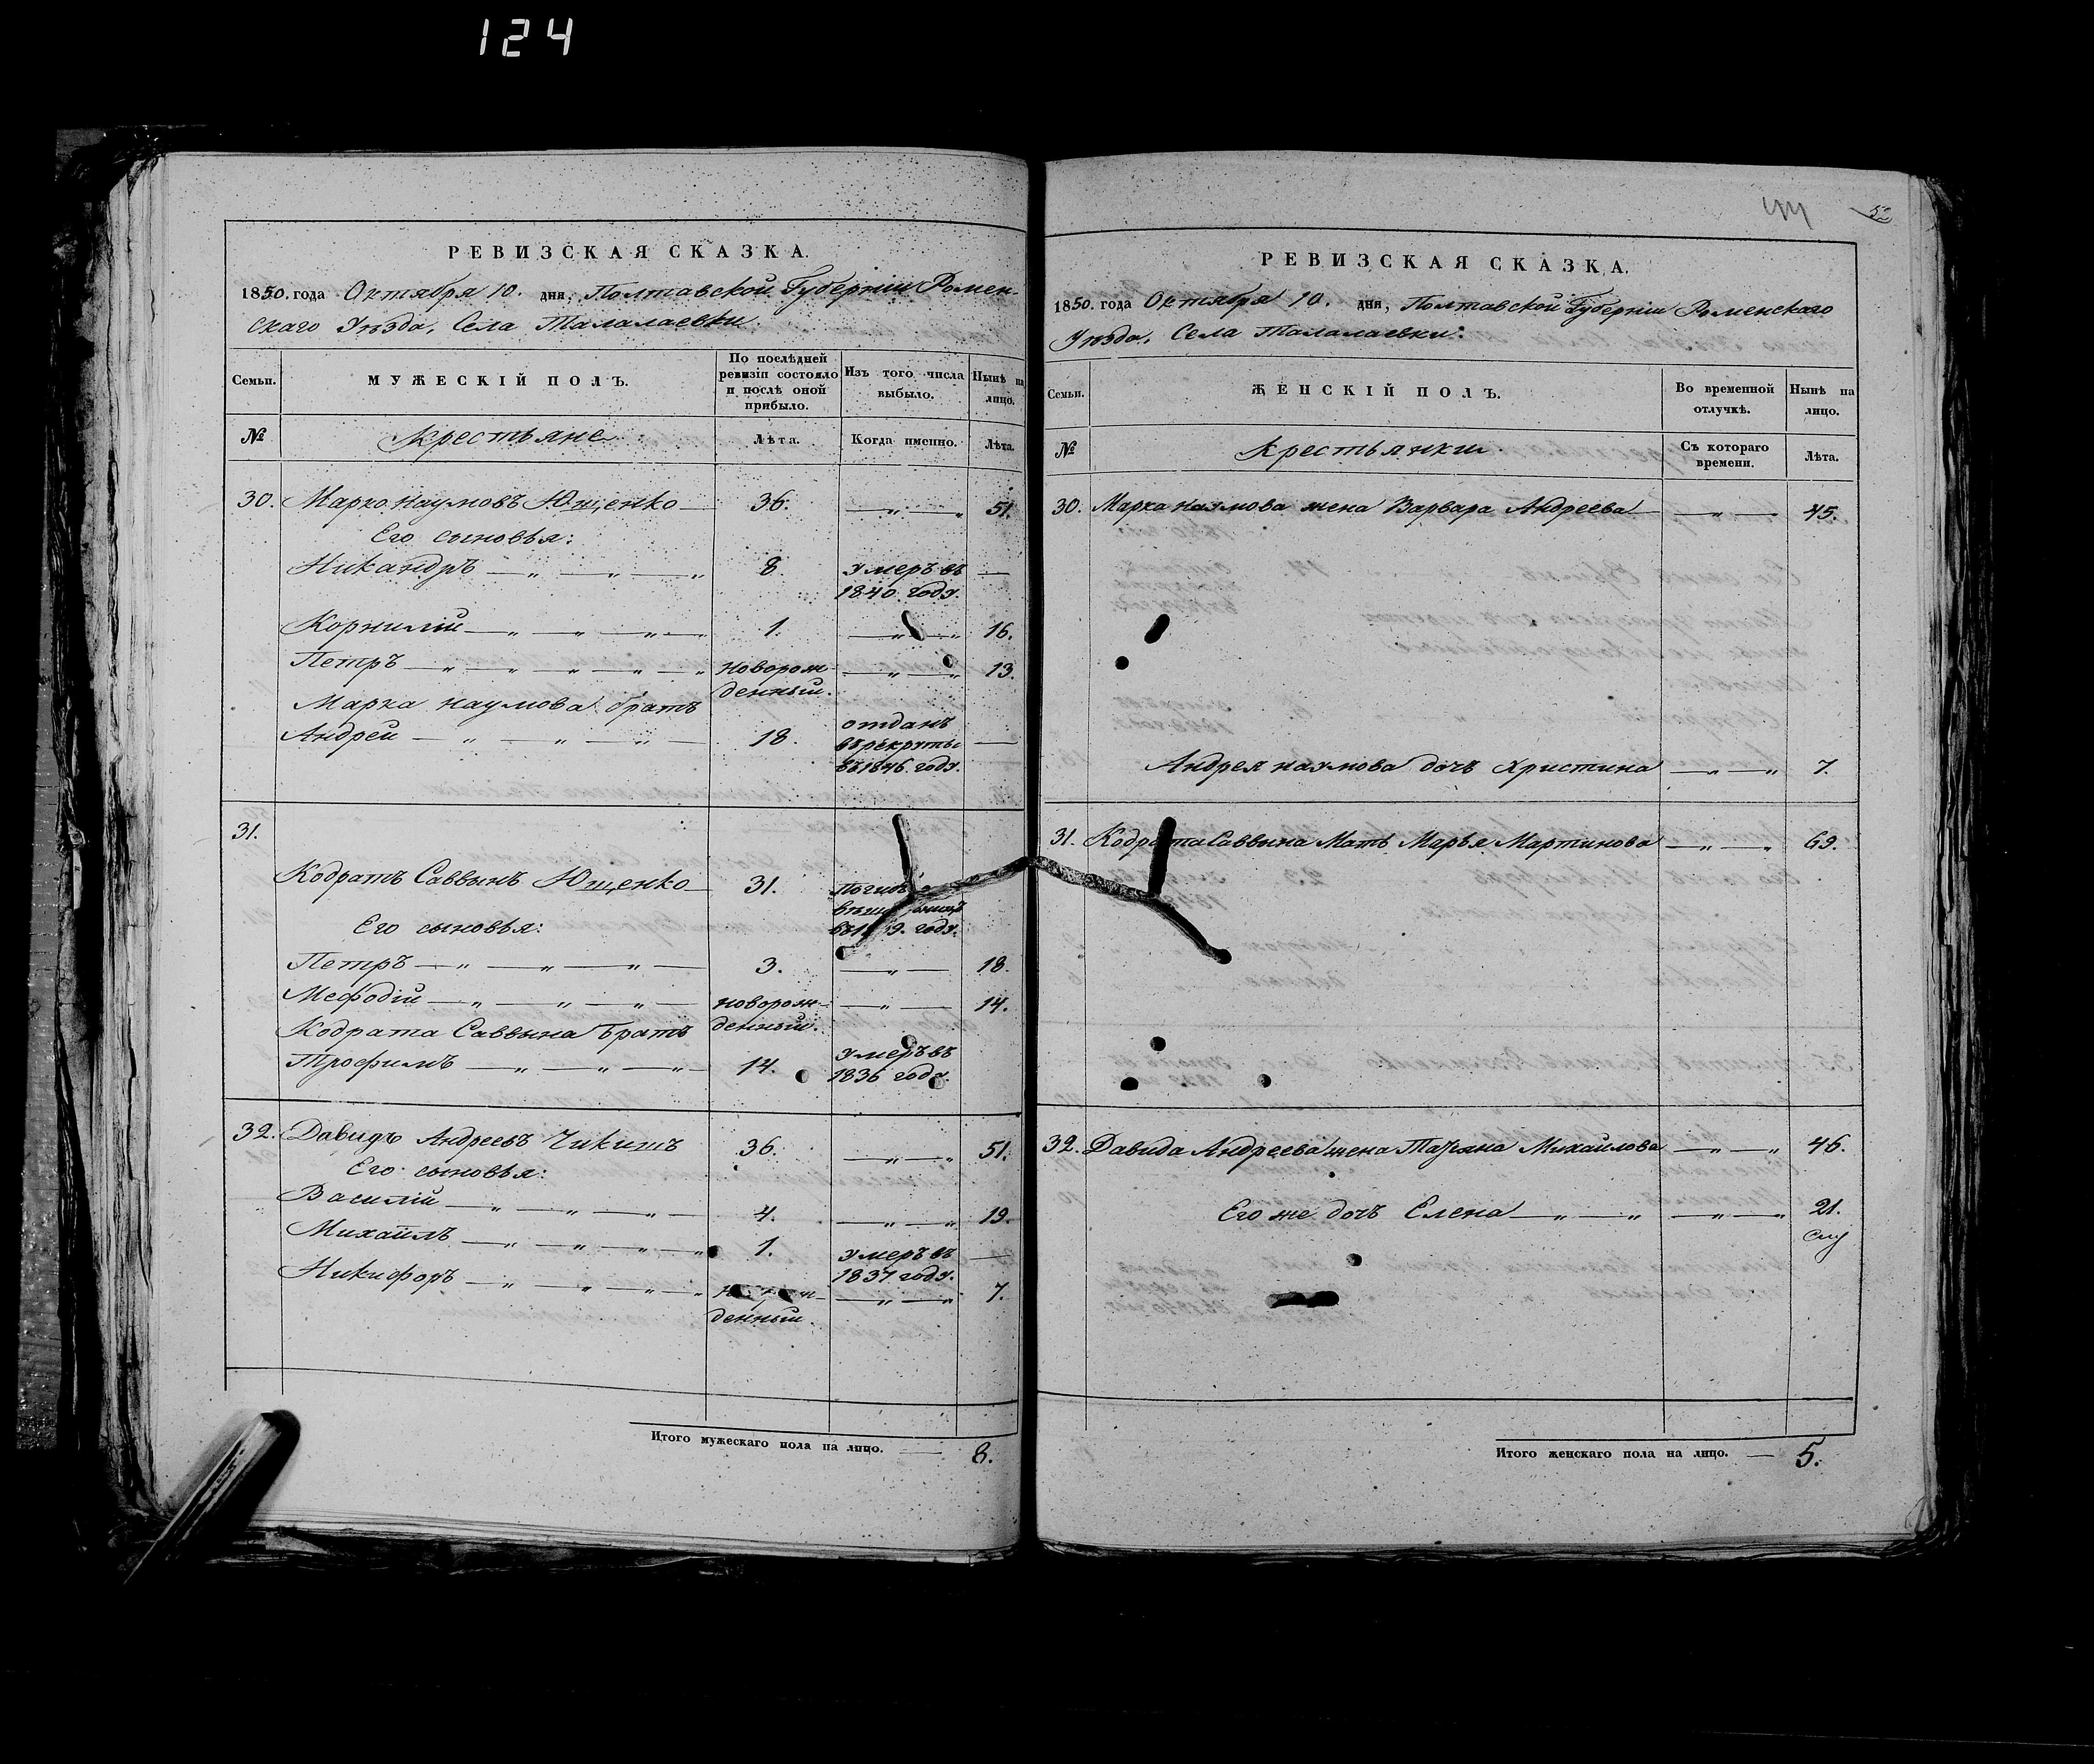 124
РЕВИЗСКАЯ СКАЗКА.
1850. года Октября 10. дня, Полтавской Губерніи Ромен-
скаго Уѣзда, Села Талалаевки.
Семьи.
МУЖЕСКІЙ ПОЛЪ.
По послѣдней ревизіи состояло и послѣ оной прибыло.
Изъ того числа выбыло.
Нынѣ на лицо.
№
Крестьяне
Лѣта.
Когда именно.
Лѣта.
30. Марко Наумовъ Ющенко 36. — „ — „ 51.
Его сыновья:
Никандръ — „ — „ — „ 8. умеръ въ —
1840 году.
Корнилій — „ — „ — „ — 1. — „ — „ 16.
Петръ — „ — „ — „ — „ — „ новорож- — „ — „ 13.
денный.
Марка Наумова братъ
Андрей — „ — „ — „ — 18. отданъ —
въ рекруты
въ 1846 году.
31.
Кодратъ Саввинъ Ющенко 31.
году.
Его сыновья:
Петръ — „ — „ — „ — 3. — „ — 18.
Мефодій — „ — „ — „ — новорож- — „ — 14.
денный.
Кодрата Саввина братъ
Трофимъ — „ — „ — „ — 14. умеръ въ
1836 году.
32. Давидъ Андреевъ Чикитъ 36. — „ — „ 51.
Его сыновья:
Василій — „ — „ — „ — 4. — „ — „ 19.
Михайлъ — „ — „ — „ — „ 1. умеръ въ —
1837 году.
Никифоръ — „ — „ — „ — „ — „ — „ 7.
денный.
Итого мужескаго пола на лицо. — 8.
52
РЕВИЗСКАЯ СКАЗКА.
1850. года Октября 10. дня, Полтавской Губерніи Роменскаго
Уѣзда, Села Талалаевки.
Семьи.
ЖЕНСКІЙ ПОЛЪ.
Во временной отлучкѣ.
Нынѣ на лицо.
№
Крестьянки.
Съ котораго времени.
Лѣта.
30. Марка Наумова жена Варвара Андреева — „ — 45.
Андрея Наумова дочь Христина — „ — „ 7.
31. Кодрата Саввина Мать Марья Мартинова — „ — „ 69.
32. Давида Андреева жена Татьяна Михайлова — „ — „ 46.
Его же дочь Елена — „ — „ — „ — „ 21.
Итого женскаго пола на лицо. — 5.